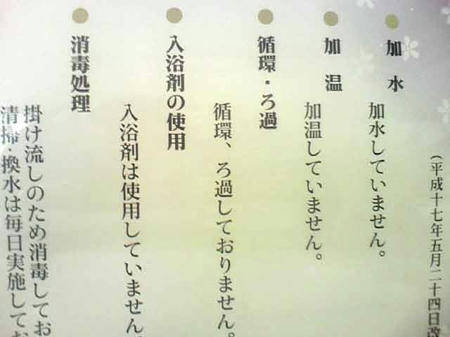 （平成十七年五月二十四日改
加水
加水していません。
加温
加温していません。
循環・ろ過
循環、ろ過しておりません。
入浴剤の使用
入浴剤は使用していません。
消毒処理
掛け流しのため消毒してお
清掃・換水は毎日実施してお